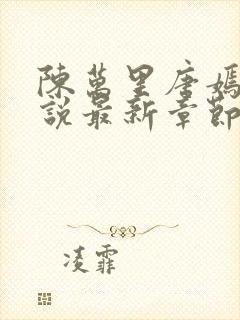 陳萬里唐嫣
說最新章節
凌霏